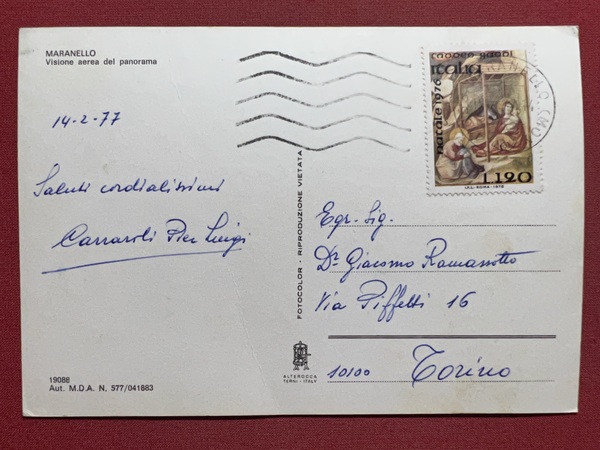 MARANELLO
Visione aerea del panorama
14-2-77
Saluti cordialissimi
Carraroli Pier Luigi
19088
Aut. M.D.A. N. 577/041883
FOTOCOLOR - RIPRODUZIONE VIETATA
ALTEROCCA
TERNI - ITALY
taddeo gaddi
italia
natale 1976
L120
I.P.S.-ROMA-1976
MARANELLO (MO)
Egr. Sig.
Dr. Giacomo Ramassotto
Via Piffetti 16
10100 Torino